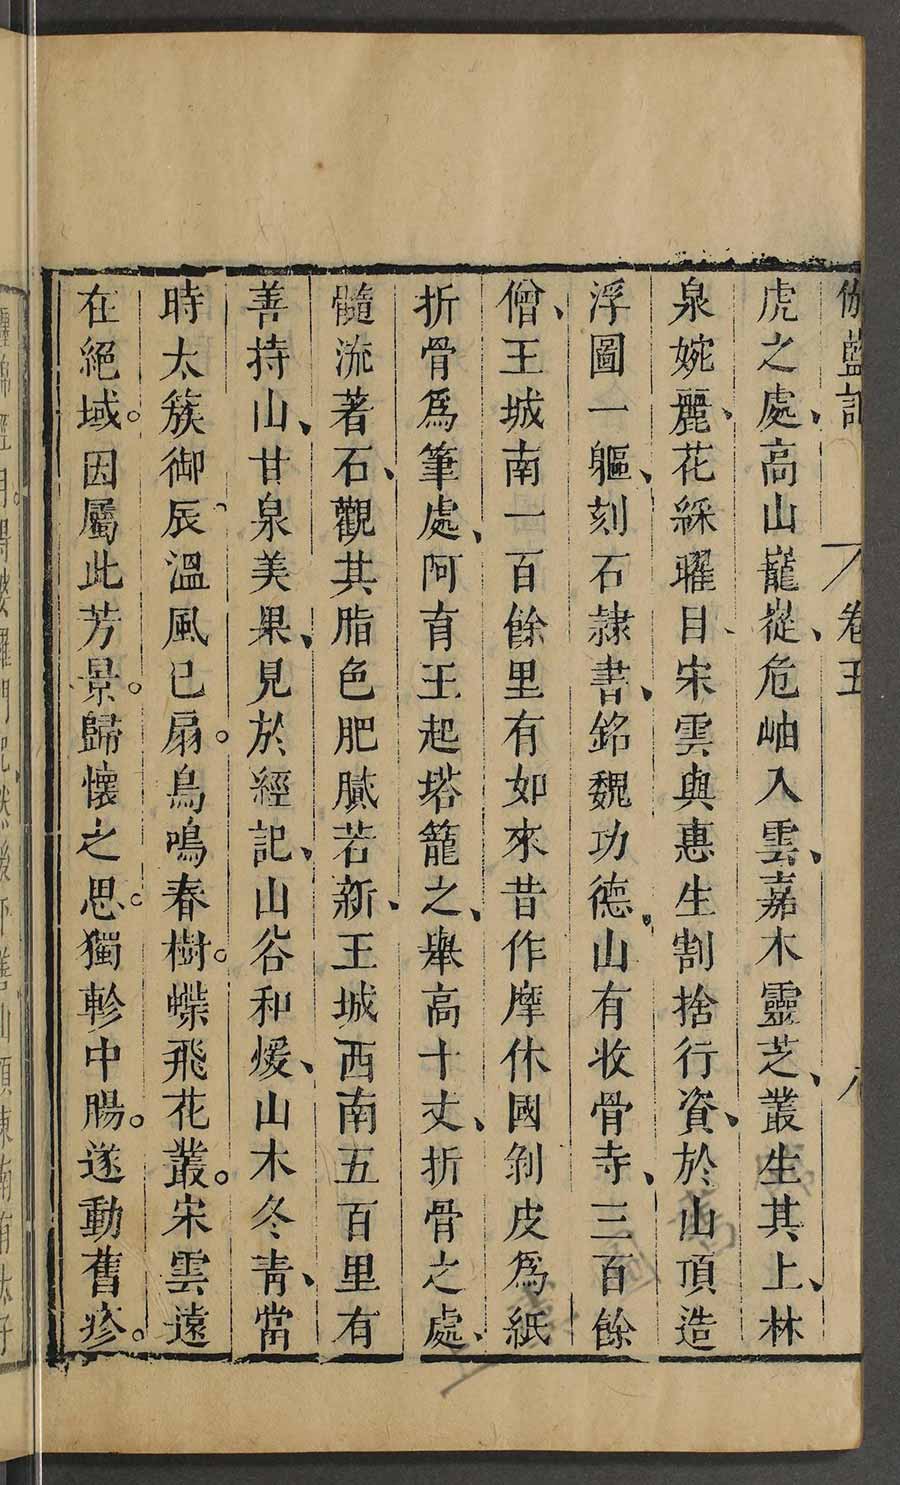 伽藍記 卷五 八
虎之處、高山巃嵸、危岫入雲、嘉木靈芝、叢生其上、林
泉婉麗、花綵曜目、宋雲與惠生割捨行資、於山頂造
浮圖一軀、刻石隷書、銘魏功德、山有收骨寺、三百餘
僧、王城南一百餘里有如來昔作摩休國剝皮爲紙
折骨爲筆處、阿育王起塔籠之、舉高十丈、折骨之處、
髓流著石、觀其脂色肥膩若新、王城西南五百里有
善持山、甘泉美果、見於經記、山谷和煖、山木冬靑、當
時太簇御辰、溫風已扇。鳥鳴春樹。蝶飛花叢。宋雲遠
在絕域。因屬此芳景。歸懷之思。獨軫中腸。遂動舊疹。